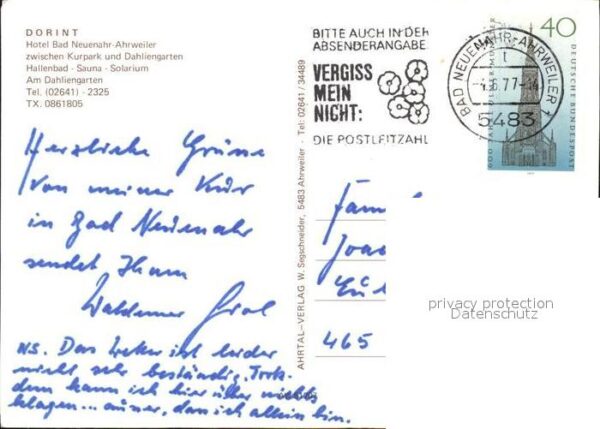 DORINT
Hotel Bad Neuenahr-Ahrweiler
zwischen Kurpark und Dahliengarten
Hallenbad - Sauna - Solarium
Am Dahliengarten
Tel. (02641) - 2325
TX. 0861805
Herzliche Grüße
von meiner Kur
in Bad Neuenahr
sendet Ihnen
Waldemar
NS. Das Wetter ist leider
nicht sehr beständig. Trotz-
dem kann ich hier über nichts
klagen... außer, daß ich allein bin.
AHRTAL-VERLAG W. Segschneider, 5483 Ahrweiler · Tel: 02641 / 34489
BITTE AUCH IN DER
ABSENDERANGABE
VERGISS
MEIN
NICHT:
DIE POSTLEITZAHL
BAD NEUENAHR-AHRWEILER 1
.77
5483
40
DEUTSCHE BUNDESPOST
600 JAHRE ULMER MÜNSTER
Fam
Joac
465
privacy protection
Datenschutz